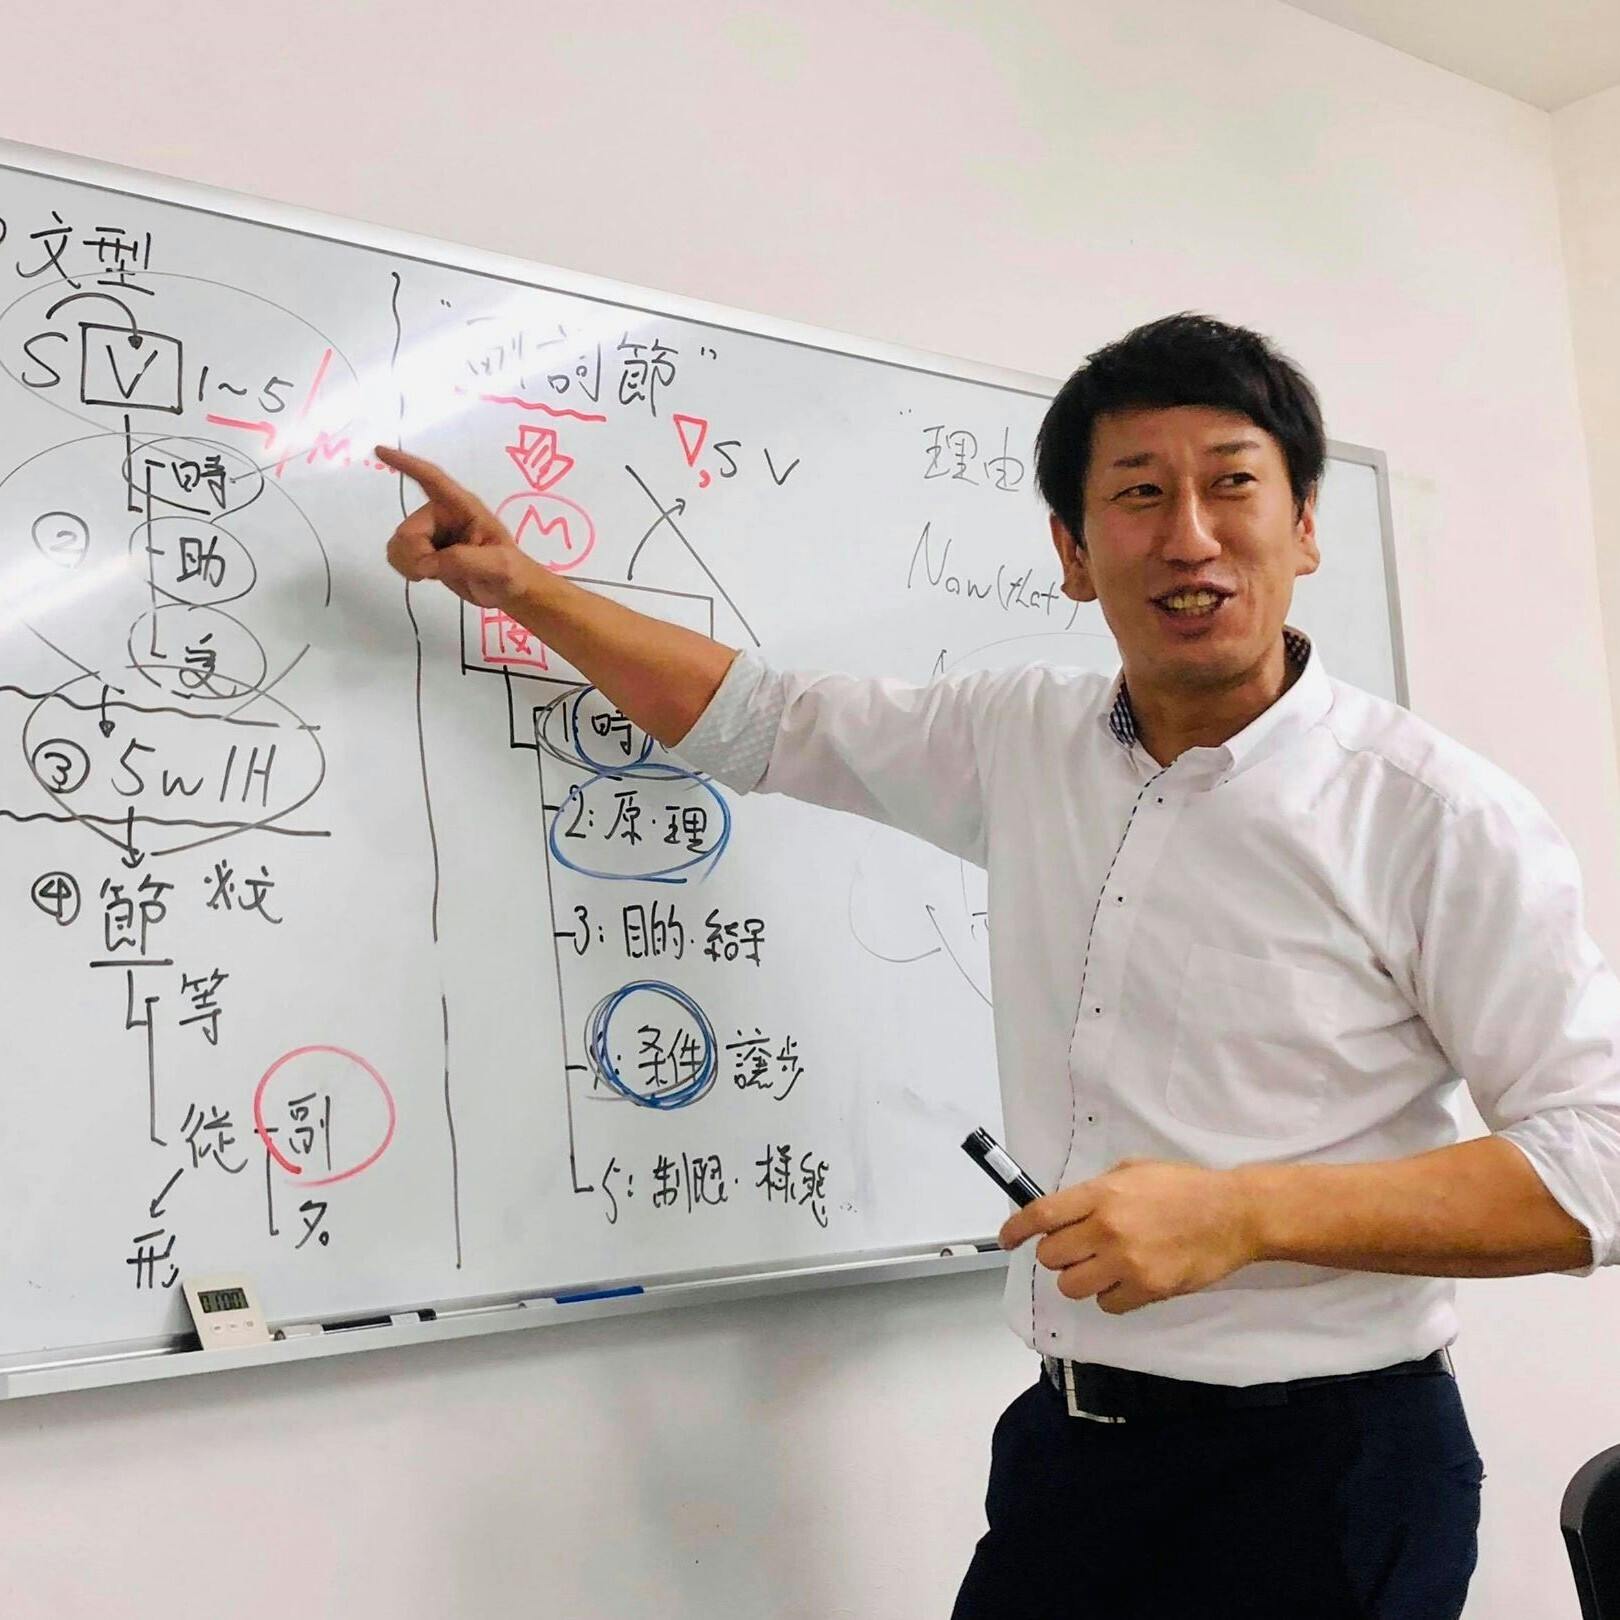 文型
S V 1~5
時
② 助
受
③ 5W1H
④ 節
等
従 副
名
形
"副詞節"
, S V
M
接
1: 時
2: 原・理
3: 目的・結果
4: 条件 譲歩
5: 制限・様態
"理由
Now (that)